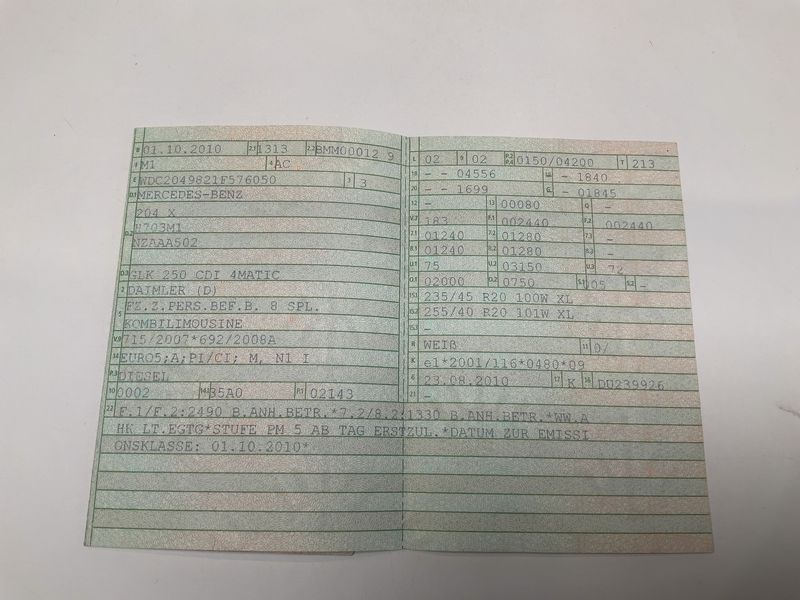 B 01.10.2010 2.1 1313 2.2 BMM00012 9
J M1 4 AC
E WDC2049821F576050 3 3
D.1 MERCEDES-BENZ
204 X
D.2
NZAAA502
D.3 GLK 250 CDI 4MATIC
2 DAIMLER (D)
5 FZ.Z.PERS.BEF.B. 8 SPL.
KOMBILIMOUSINE
V.9 715/2007*692/2008A
14 EURO5;A;PI/CI; M, N1 I
P.3 DIESEL
10 0002 14.1 35A0 P.1 02143
L 02 9 02 P.2 P.4 0150/04200 T 213
18 - - 04556 19 - 1840
20 - - 1699 G - 01845
12 - 13 00080 Q -
V.7 183 F.1 002440 F.2 002440
7.1 01240 7.2 01280 7.3 -
8.1 01240 8.2 01280 8.3 -
U.1 75 U.2 03150 U.3 72
O.1 02000 O.2 0750 S.1 005 S.2 -
15.1 235/45 R20 100W XL
15.2 255/40 R20 101W XL
15.3 -
R WEIß 11 0/
K e1*2001/116*0480*09
6 23.08.2010 17 K 16 DU239926
21 -
22 F.1/F.2:2490 B.ANH.BETR.*7.2/8.2:1330 B.ANH.BETR.*WW.A
HK LT.EGTG*STUFE PM 5 AB TAG ERSTZUL.*DATUM ZUR EMISSI
ONSKLASSE: 01.10.2010*